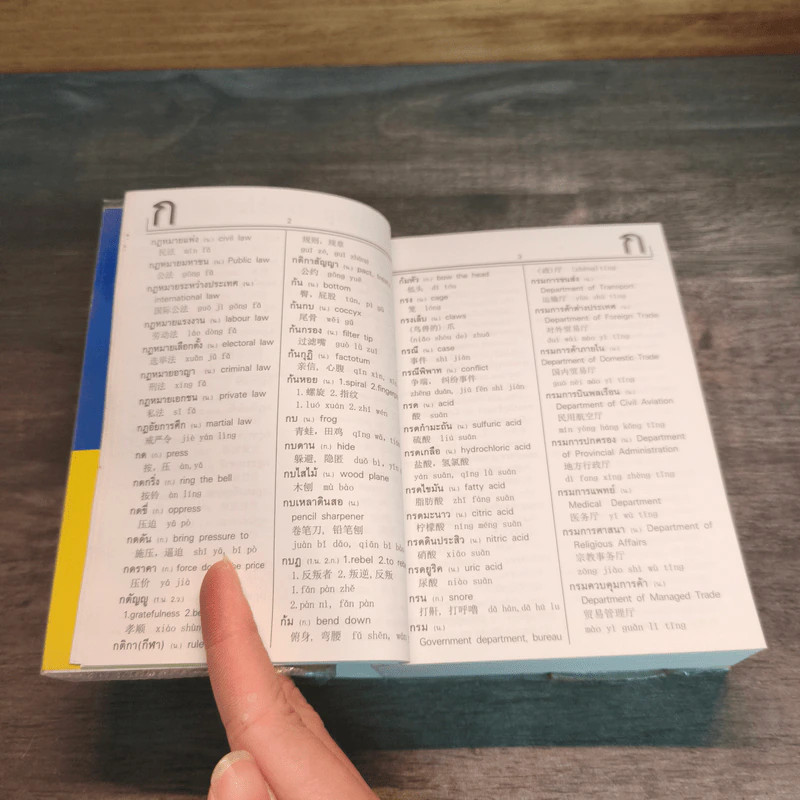 ก
2
กฎหมายแพ่ง (น.) civil law
民法 mín fǎ
กฎหมายมหาชน (น.) Public law
公法 gōng fǎ
กฎหมายระหว่างประเทศ (น.)
international law
国际公法 guó jì gōng fǎ
กฎหมายแรงงาน (น.) labour law
劳动法 láo dòng fǎ
กฎหมายเลือกตั้ง (น.) electoral law
选举法 xuǎn jǔ fǎ
กฎหมายอาญา (น.) criminal law
刑法 xíng fǎ
กฎหมายเอกชน (น.) private law
私法 sī fǎ
กฎอัยการศึก (น.) martial law
戒严令 jiè yán lìng
กด (ก.) press
按, 压 àn, yā
กดกริ่ง (ก.) ring the bell
按铃 àn líng
กดขี่ (ก.) oppress
压迫 yā pò
กดดัน (ก.) bring pressure to
施压, 逼迫 shī yā, bī pò
กดราคา (ก.) force do he price
压价 yā jià
กตัญญู (ก.น.ว.)
1.gratefulness 2.be
孝顺 xiào shùn
กติกา(กีฬา) (น.) rule
规则, 规章
guī zé, guī zhāng
กติกาสัญญา (น.) pact, treat
公约 gōng yuē
ก้น (น.) bottom
臀, 屁股 tún, pì gu
ก้นกบ (น.) coccyx
尾骨 wěi gǔ
ก้นกรอง (น.) filter tip
过滤嘴 guò lǜ zuǐ
ก้นกุฏิ (น.) factotum
亲信, 心腹 qīn xìn, xīn
ก้นหอย (น.) 1.spiral 2.fingerp
1.螺旋 2.指纹
1.luó xuán 2.zhǐ wén
กบ (น.) frog
青蛙, 田鸡 qīng wā, tiá
กบดาน (ก.) hide
躲避, 隐匿 duǒ bì, yǐn
กบไสไม้ (น.) wood plane
木刨 mù bào
กบเหลาดินสอ (น.)
pencil sharpener
卷笔刀, 铅笔刨
juǎn bǐ dāo, qiān bǐ bà
กบฏ (ก.น.ว.) 1.rebel 2.to reb
1.反叛者 2.叛逆,反叛
1.fǎn pàn zhě
2.pàn nì, fǎn pàn
ก้ม (ก.) bend down
俯身, 弯腰 fǔ shēn, wān
ก
3
ก้มหัว (ก.) bow the head
低头 dī tóu
กรง (น.) cage
笼 lóng
กรงเล็บ (น.) claws
(鸟兽的)爪
(niǎo shòu de) zhuǎ
กรณี (น.) case
事件 shì jiàn
กรณีพิพาท (น.) conflict
争端, 纠纷事件
zhēng duān, jiū fēn shì jiàn
กรด (น.) acid
酸 suān
กรดกำมะถัน (น.) sulfuric acid
硫酸 liú suān
กรดเกลือ (น.) hydrochloric acid
盐酸, 氢氯酸
yán suān, qīng lǜ suān
กรดไขมัน (น.) fatty acid
脂肪酸 zhī fáng suān
กรดมะนาว (น.) citric acid
柠檬酸 níng méng suān
กรดดินประสิว (น.) nitric acid
硝酸 xiāo suān
กรดยูริค (น.) uric acid
尿酸 niào suān
กรน (ก.) snore
打鼾, 打呼噜 dǎ hān,dǎ hū lu
กรม (น.)
Government department, bureau
(政)厅 (zhèng) tīng
กรมการขนส่ง (น.)
Department of Transport
运输厅 yùn shū tīng
กรมการค้าต่างประเทศ (น.)
Department of Foreign Trade
对外贸易厅
duì wài mào yì tīng
กรมการค้าภายใน (น.)
Department of Domestic Trade
国内贸易厅
guó nèi mào yì tīng
กรมการบินพลเรือน (น.)
Department of Civil Aviation
民用航空厅
mín yòng háng kōng tīng
กรมการปกครอง (น.) Department
of Provincial Administration
地方行政厅
dì fāng xíng zhèng tīng
กรมการแพทย์ (น.)
Medical Department
医务厅 yī wù tīng
กรมการศาสนา (น.) Department of
Religious Affairs
宗教事务厅
zōng jiào shì wù tīng
กรมควบคุมการค้า (น.)
Department of Managed Trade
贸易管理厅
mào yì guǎn lǐ tīng